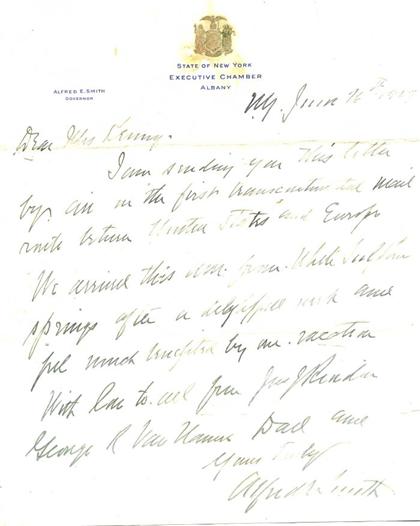 STATE OF NEW YORK
EXECUTIVE CHAMBER
ALBANY
ALFRED E. SMITH
GOVERNOR
NY. June 16th
Dear Mrs Kenny.
I am sending you this letter
by air in the first transcontinental mail
route between United States and Europe
We arrived this a.m. from White Sulphur
springs after a delightful week and
feel much benefited by our vacation
With love to all from Jas J Riordan
George R Van Namee Dad and
Yours truly
Alfred E Smith